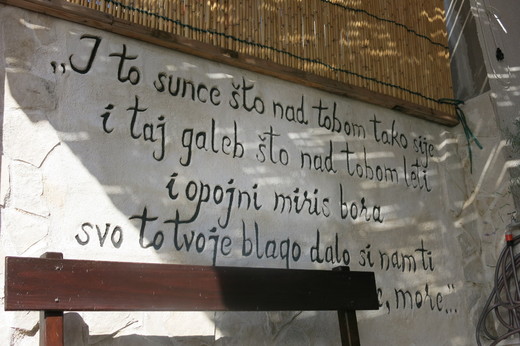 „I to sunce što nad tobom tako sije
i taj galeb što nad tobom leti
i opojni miris bora
svo to tvoje blago dalo si nam ti
more...“